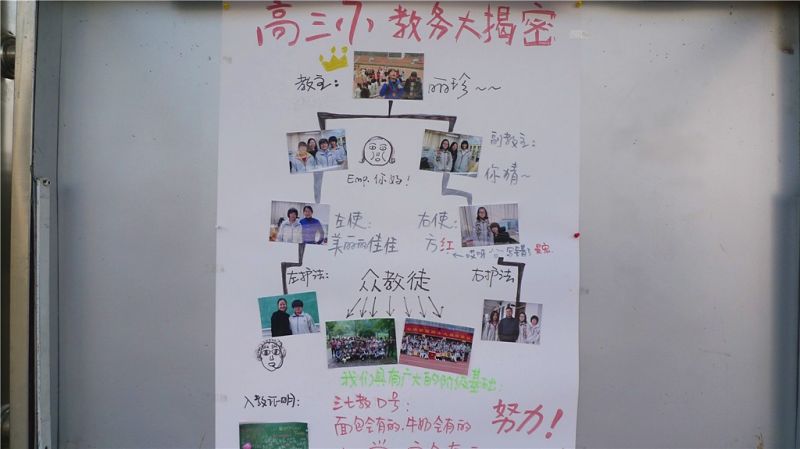 高三(7) 教务大揭密
教主: 丽珍~~
副教主:
你猜~
Emp. 你好!
左使:
美丽佳佳
右使:
方红
左护法:
众教徒
右护法
我们具有广大的阶级基础:
入教证明:
三七教口号:
面包会有的, 牛奶会有的
努力!